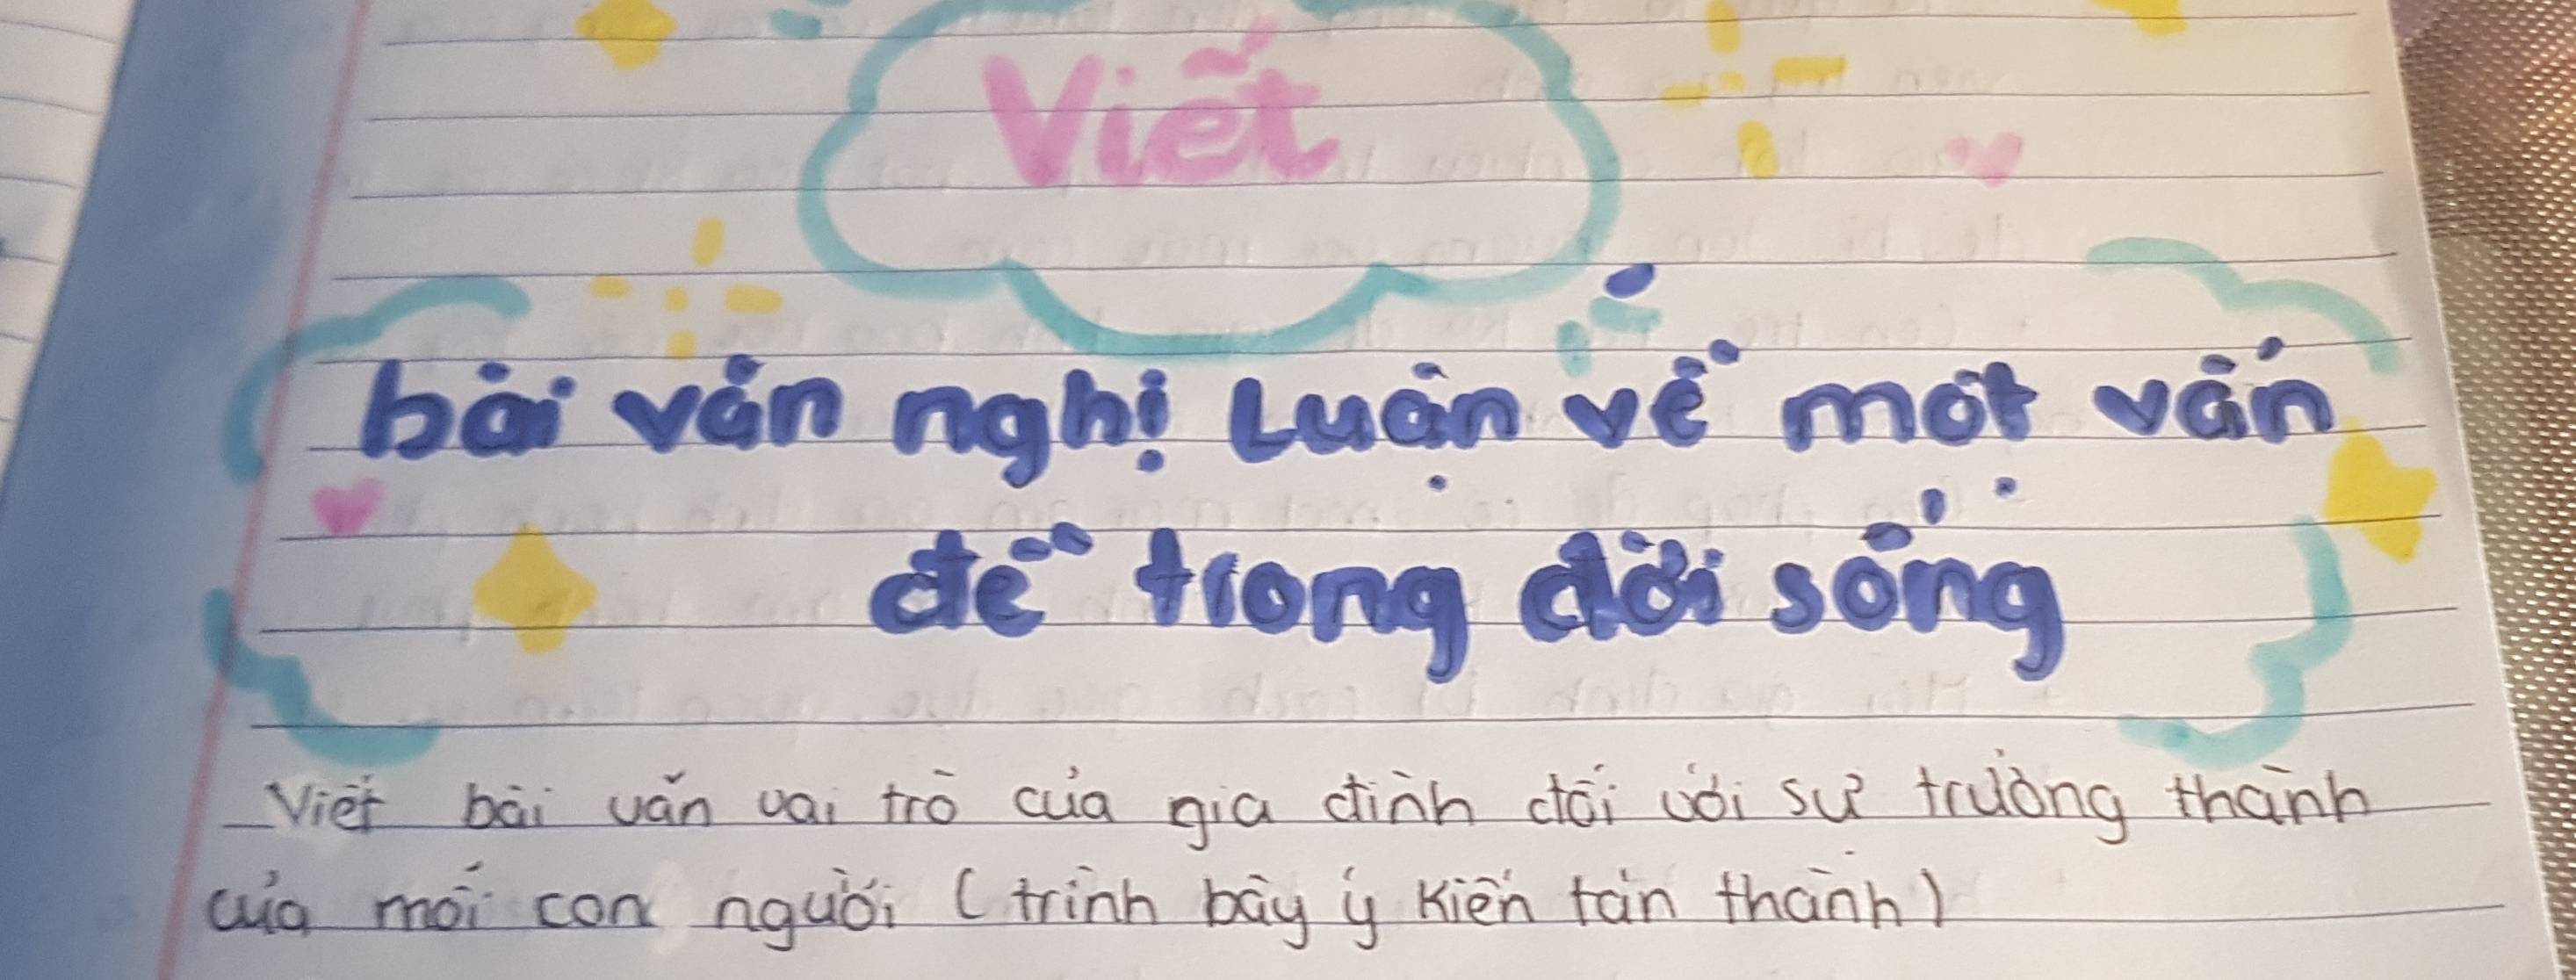 Viết
bài văn nghị luận về một vấn
đề trong đời sống
Viết bài văn vai trò của gia đình đối với sự trưởng thành
của mỗi con người (trình bày ý kiến tán thành)